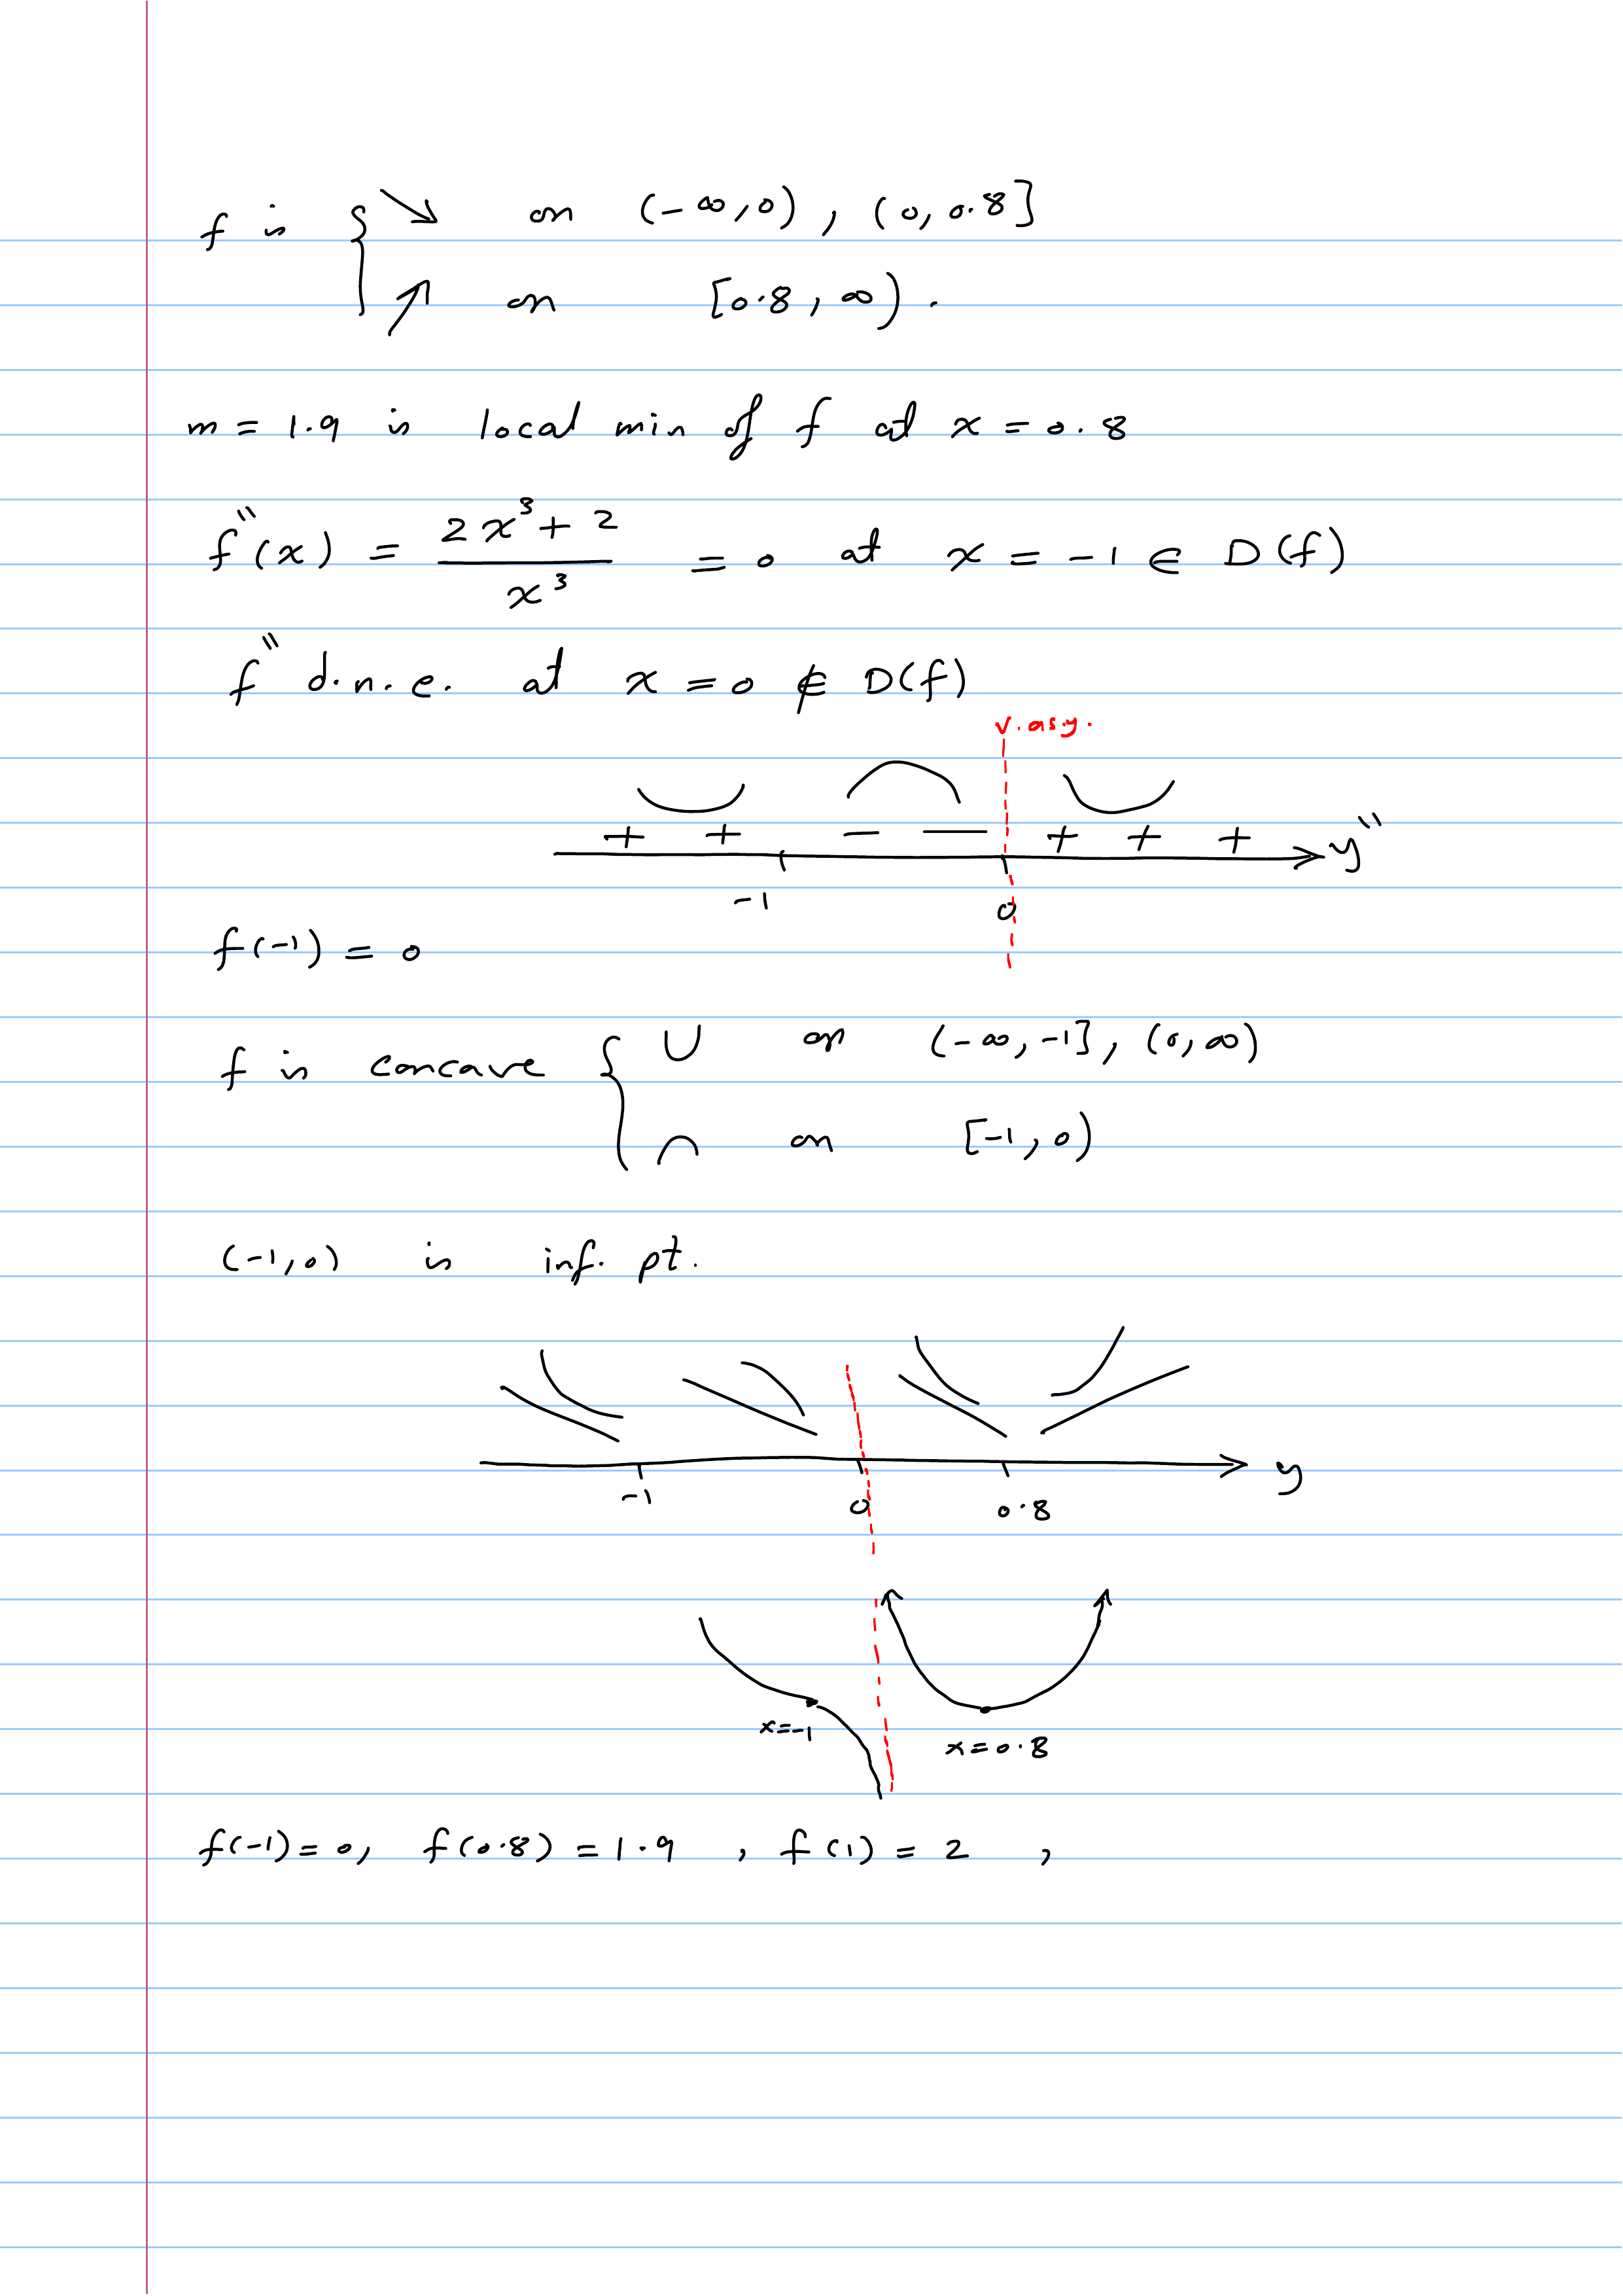 f is { ↘ on (-∞, 0) , (0, 0.8]
↗ on [0.8, ∞) .
m = 1.9 is local min of f at x = 0.8
f''(x) = (2x³ + 2)/x³ = 0 at x = -1 ∈ D(f)
f'' d.n.e. at x = 0 ∉ D(f)
v. asy.
+ + — — + + + y''
-1 0
f(-1) = 0
f is concave { ∪ on (-∞, -1], (0, ∞)
∩ on [-1, 0)
(-1, 0) is inf. pt.
y
-1 0 0.8
x=-1 x=0.8
f(-1) = 0, f(0.8) = 1.9 , f(1) = 2 ,